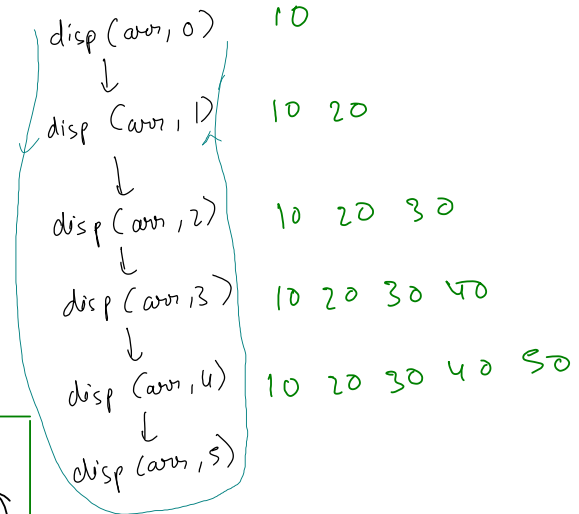 disp (arr, 0) 10
disp (arr, 1) 10 20
disp (arr, 2) 10 20 30
disp (arr, 3) 10 20 30 40
disp (arr, 4) 10 20 30 40 50
disp (arr, 5)